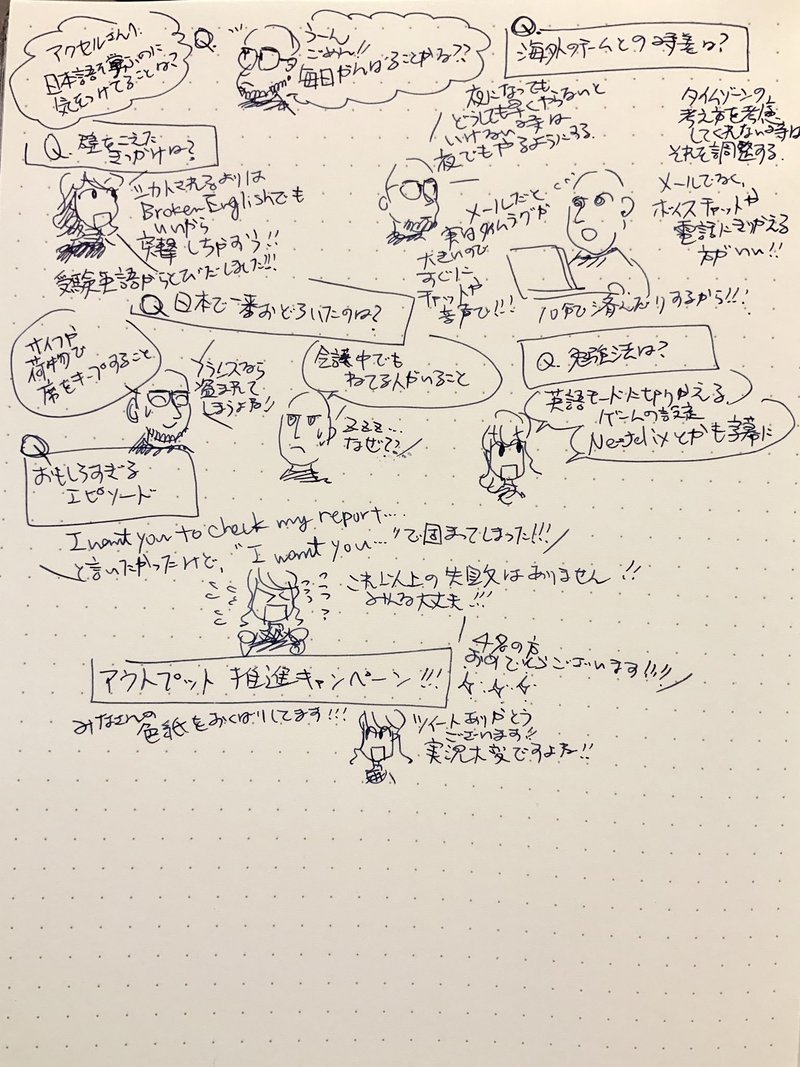 アクセルさんは
日本語を学ぶのに
気をつけてることは?
Q.
うーん
ごめん!!
毎日がんばることかな??
Q.
海外のチームとの時差は?
夜になっても
どうしても早くやらないと
いけない時は
夜でもやるようにする
タイムゾーンの
考え方を考慮
してくれない時は
それを調整する
メールでなく、
ボイスチャットや
電話にきりかえる
方がいい!!
メールだと
実はタイムラグが
大きいので
すぐに
チャットや
音声で!!!
10分で済んだりするから!!!
Q. 壁をこえた
きっかけは?
Broken Englishでも
いいから
突撃しちゃおう!!
受験英語からとびだしました!!!
Q 日本で一番おどろいたのは?
サイフや
荷物で
席をキープすること
フランスなら
盗まれて
しまうよね!!
会議中でも
ねてる人がいること
ZZZ...
なぜ??
Q. 勉強法は?
英語モードにきりかえる
ゲームの設定
Netflixとかも字幕に
Q
おもしろすぎる
エピソード
I want you to check my report...
と言いたかったけど、"I want you..."で固まってしまった!!!
これ以上の失敗はありません!!
みんな大丈夫!!!
アウトプット推進キャンペーン!!!
4名の方
おめでとうございます!!!!
みなさんの
色紙をおくばりしてます!!!
ツイートありがとう
ございます!!
実況大変ですよね!!